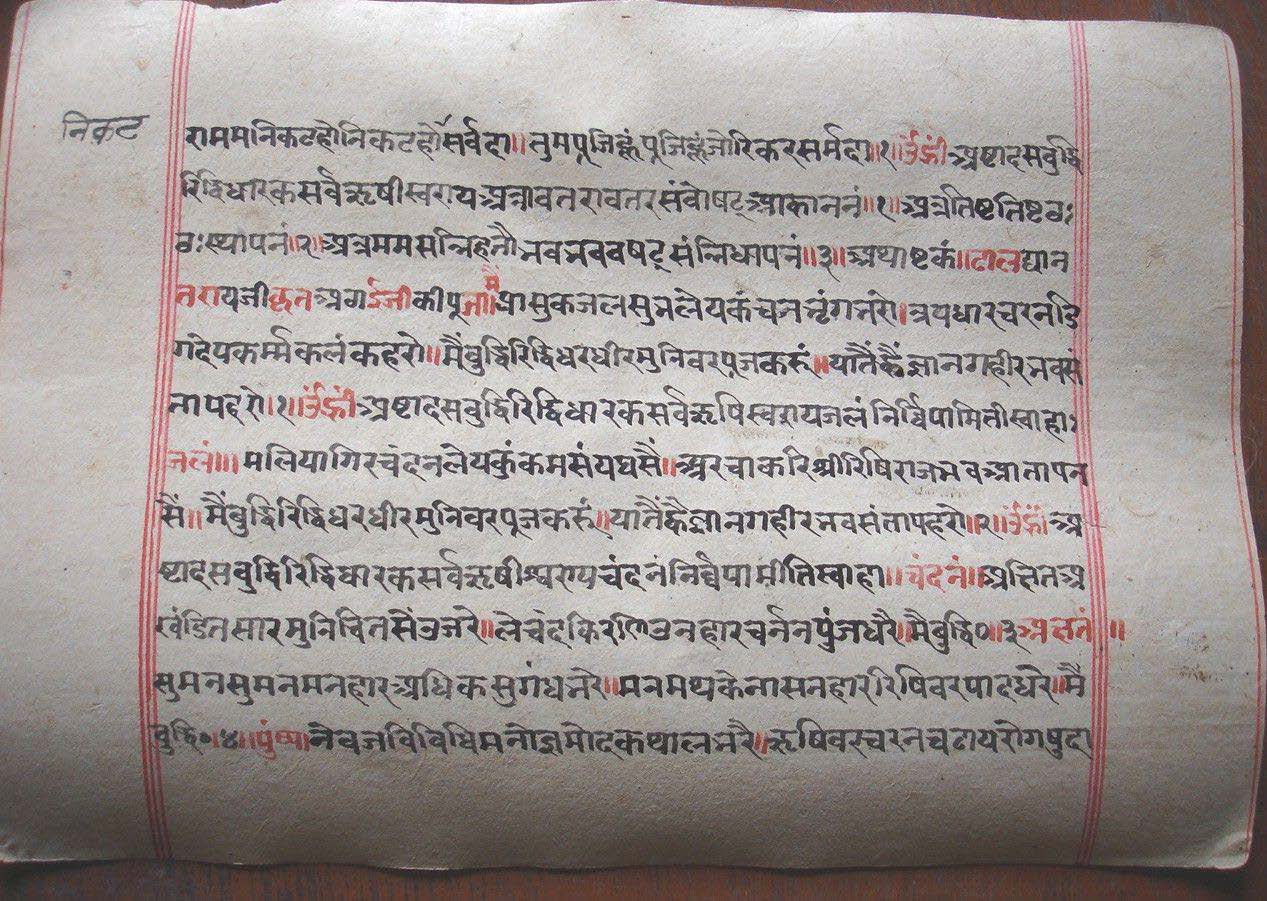 निकट
राममनिकटहोनिकटहोसर्वदा॥तुमपूजिहूंपूजिहूंजोरिकरसर्मदा॥१॥उंह्रीं अष्टादसबुद्धि
रिद्धिधारकसर्वऋषीस्वरायअत्रावतरावतरसंवोषट्आह्वाननं॥१॥अत्रतिष्टतिष्टठः
ठःस्थापनं॥२॥अत्रममसन्निहतौभवभवबषट्संन्निधापनं॥३॥अथाष्टकं॥ढालद्यान
तरायजीकृतअठाईजीकीपूजामैं॥प्रासुकजलसुभलेयकंचनभृंगभरो।त्रयधारचरनढि
गदेयकर्म्मकलंकहरो॥मैंबुद्धिरिद्धिधरधीरमुनिवरपूजकरूं॥यातैंह्वैज्ञानगहीरभवसं
तापहरो॥१॥उंह्रीं अष्टादसबुद्धिरिद्धिधारकसर्वऋषिस्वरायजलंनिर्व्विपामितीस्वाहाः
जलं॥॥मलियागिरचंदनलेयकुंकमसंयघसैं॥अरचाकरिश्रीरिषिराजभवआतापन
सैं॥मैंबुद्धिरिद्धिधरधीरमुनिवरपूजकरूं॥यातैंह्वैज्ञानगहीरभवसंतापहरो॥२॥उंह्रीं अ
ष्टादसबुद्धिरिद्धिधारकसर्वऋषीश्वरायचंदनंनिर्व्वपामीतिस्वाहा॥चंदनं॥अक्षितअ
खंडितसारमुनिचितसेंउजरे॥लेचंदकिरणिउनहारचर्ननपुंजधरै॥मैबुद्धि०॥३अक्षतं॥
सुमनसुमनमनहारअधिकसुगंधभरे॥मनमथकेनासनहाररिषिवरपादधरे॥मैं
बुद्धि०॥४॥पुंष्पं॥नेवजविविधिमनोज्ञमोदकथालभरै॥ऋषिवरचरनचढायरोगषुदा